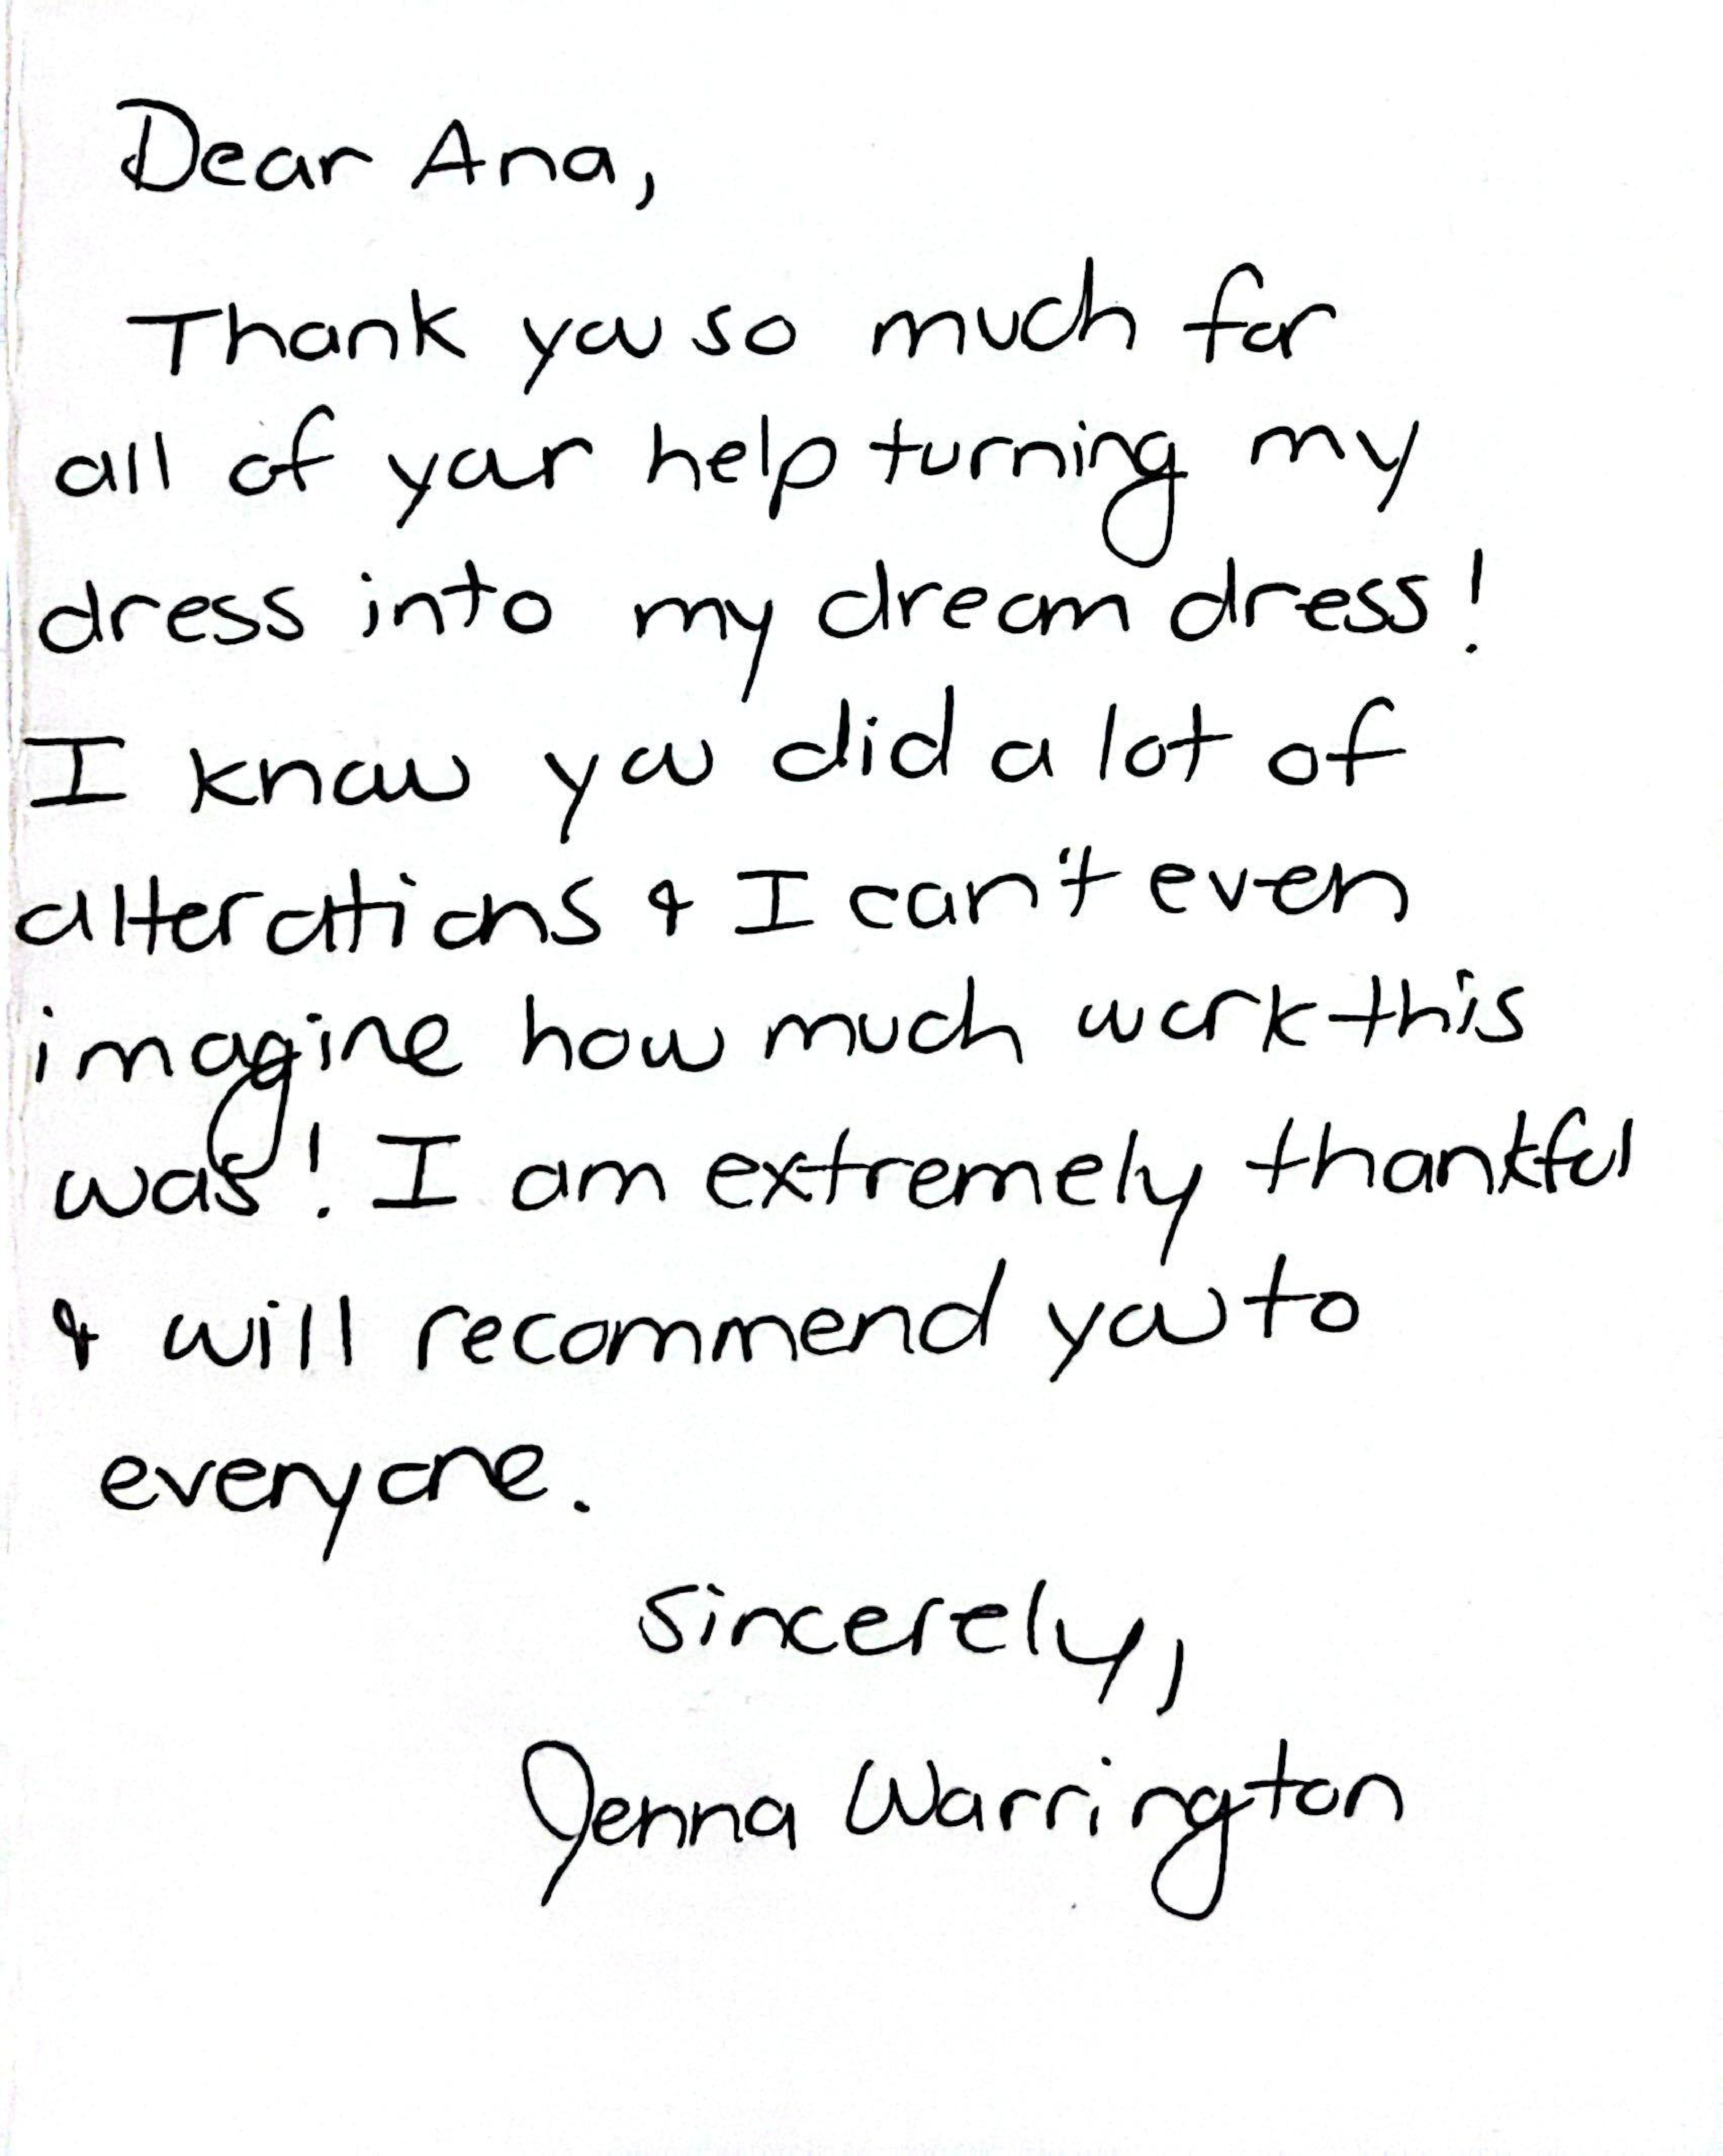 Dear Ana,
Thank you so much for
all of your help turning my
dress into my dream dress!
I know you did a lot of
alterations & I can't even
imagine how much work this
was! I am extremely thankful
& will recommend you to
everyone.
Sincerely,
Jenna Warrington